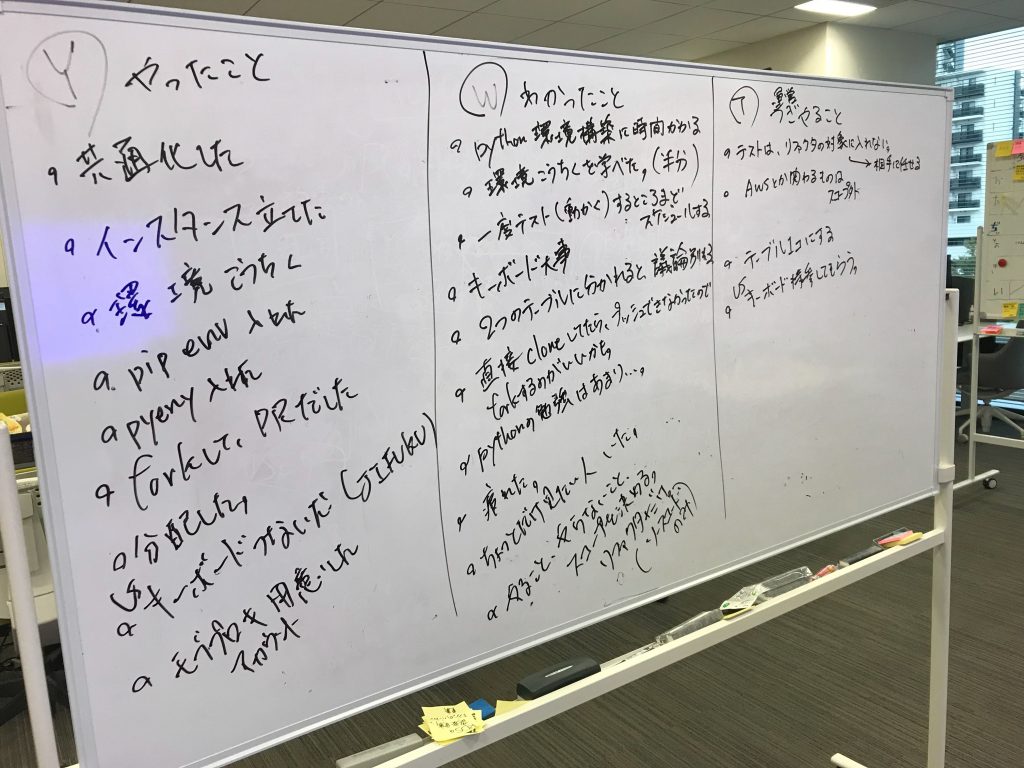 Y やったこと
共通化した
インスタンス立てた
環境こうちく
pip env 入れた
pyenv 入れた
forkして、PRだした
分配した
USキーボードつないだ (JIFUKU)
モブプロ用意した
W わかったこと
python 環境構築に時間かかる
環境こうちくを学べた。(半分)
一度テスト(動かく)するところまで
スケジュールする
キーボード大事
2つのテーブルに分かれると議論
直接 clone してたら、プッシュできなかったので
forkするのがいいかも
pythonの勉強はあまり…。
疲れた。
ちょっとだけ見たい人いた。
やること、やらないこと、
スコープを決める。
T 次やること
テストは、リファクタの対象に入れない。
→相手に任せる
AWSとか関わるものは
テーブル1コにする
USキーボード持参してもらう。